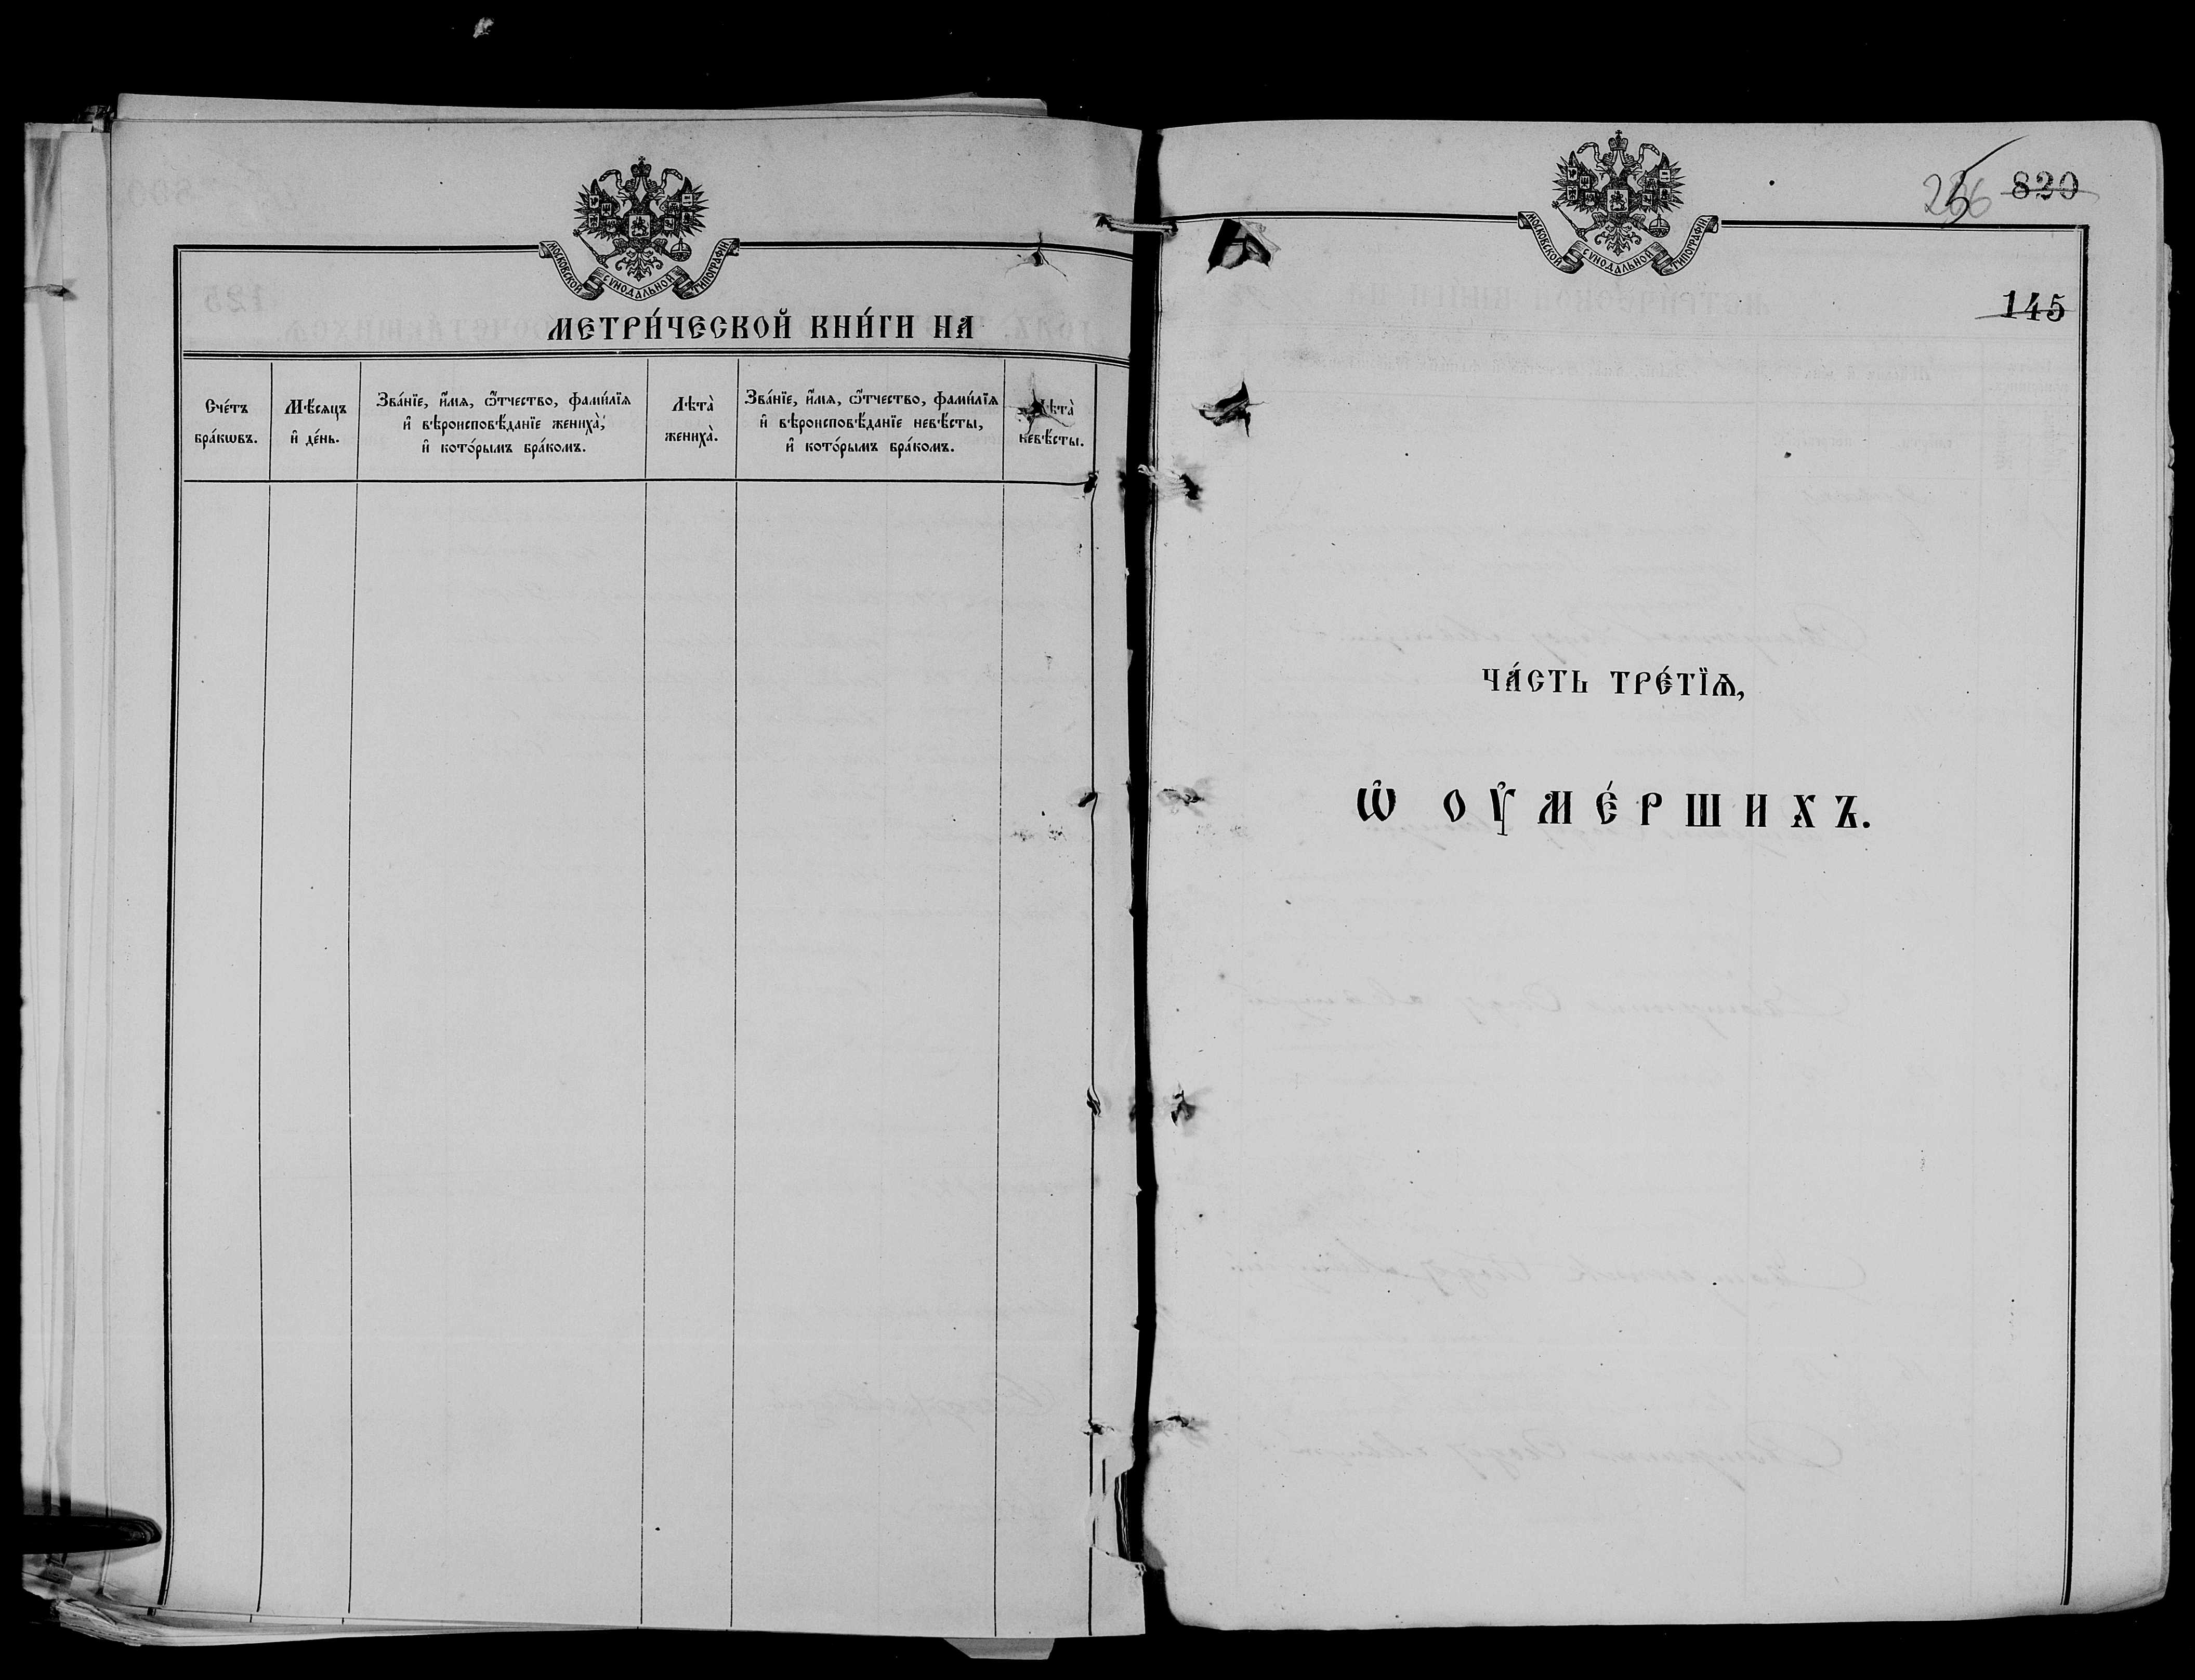 МОСКОВСКОЙ СѴНОДАЛЬНОЙ ТИПОГРАФІИ
МЕТРИ́ЧЕСКОЙ КНИ́ГИ НА
Сче́тъ
бра́кѡвъ.
Мѣ́сѧцъ
и҆ де́нь.
Зва́нїе, и҆́мѧ, ѻ҆́тчество, фами́лїѧ
и҆ вѣроисповѣ́данїе жениха̀,
и҆ кото́рымъ бра́комъ.
Лѣта̀
жениха̀.
Зва́нїе, и҆́мѧ, ѻ҆́тчество, фами́лїѧ
и҆ вѣроисповѣ́данїе невѣ́сты,
и҆ кото́рымъ бра́комъ.
Лѣта̀
невѣ́сты.
820
МОСКОВСКОЙ СѴНОДАЛЬНОЙ ТИПОГРАФІИ
145
ЧА́СТЬ ТРЕ́ТЇѦ,
Ѡ҆ ОУ҆МЕ́РШИХЪ.